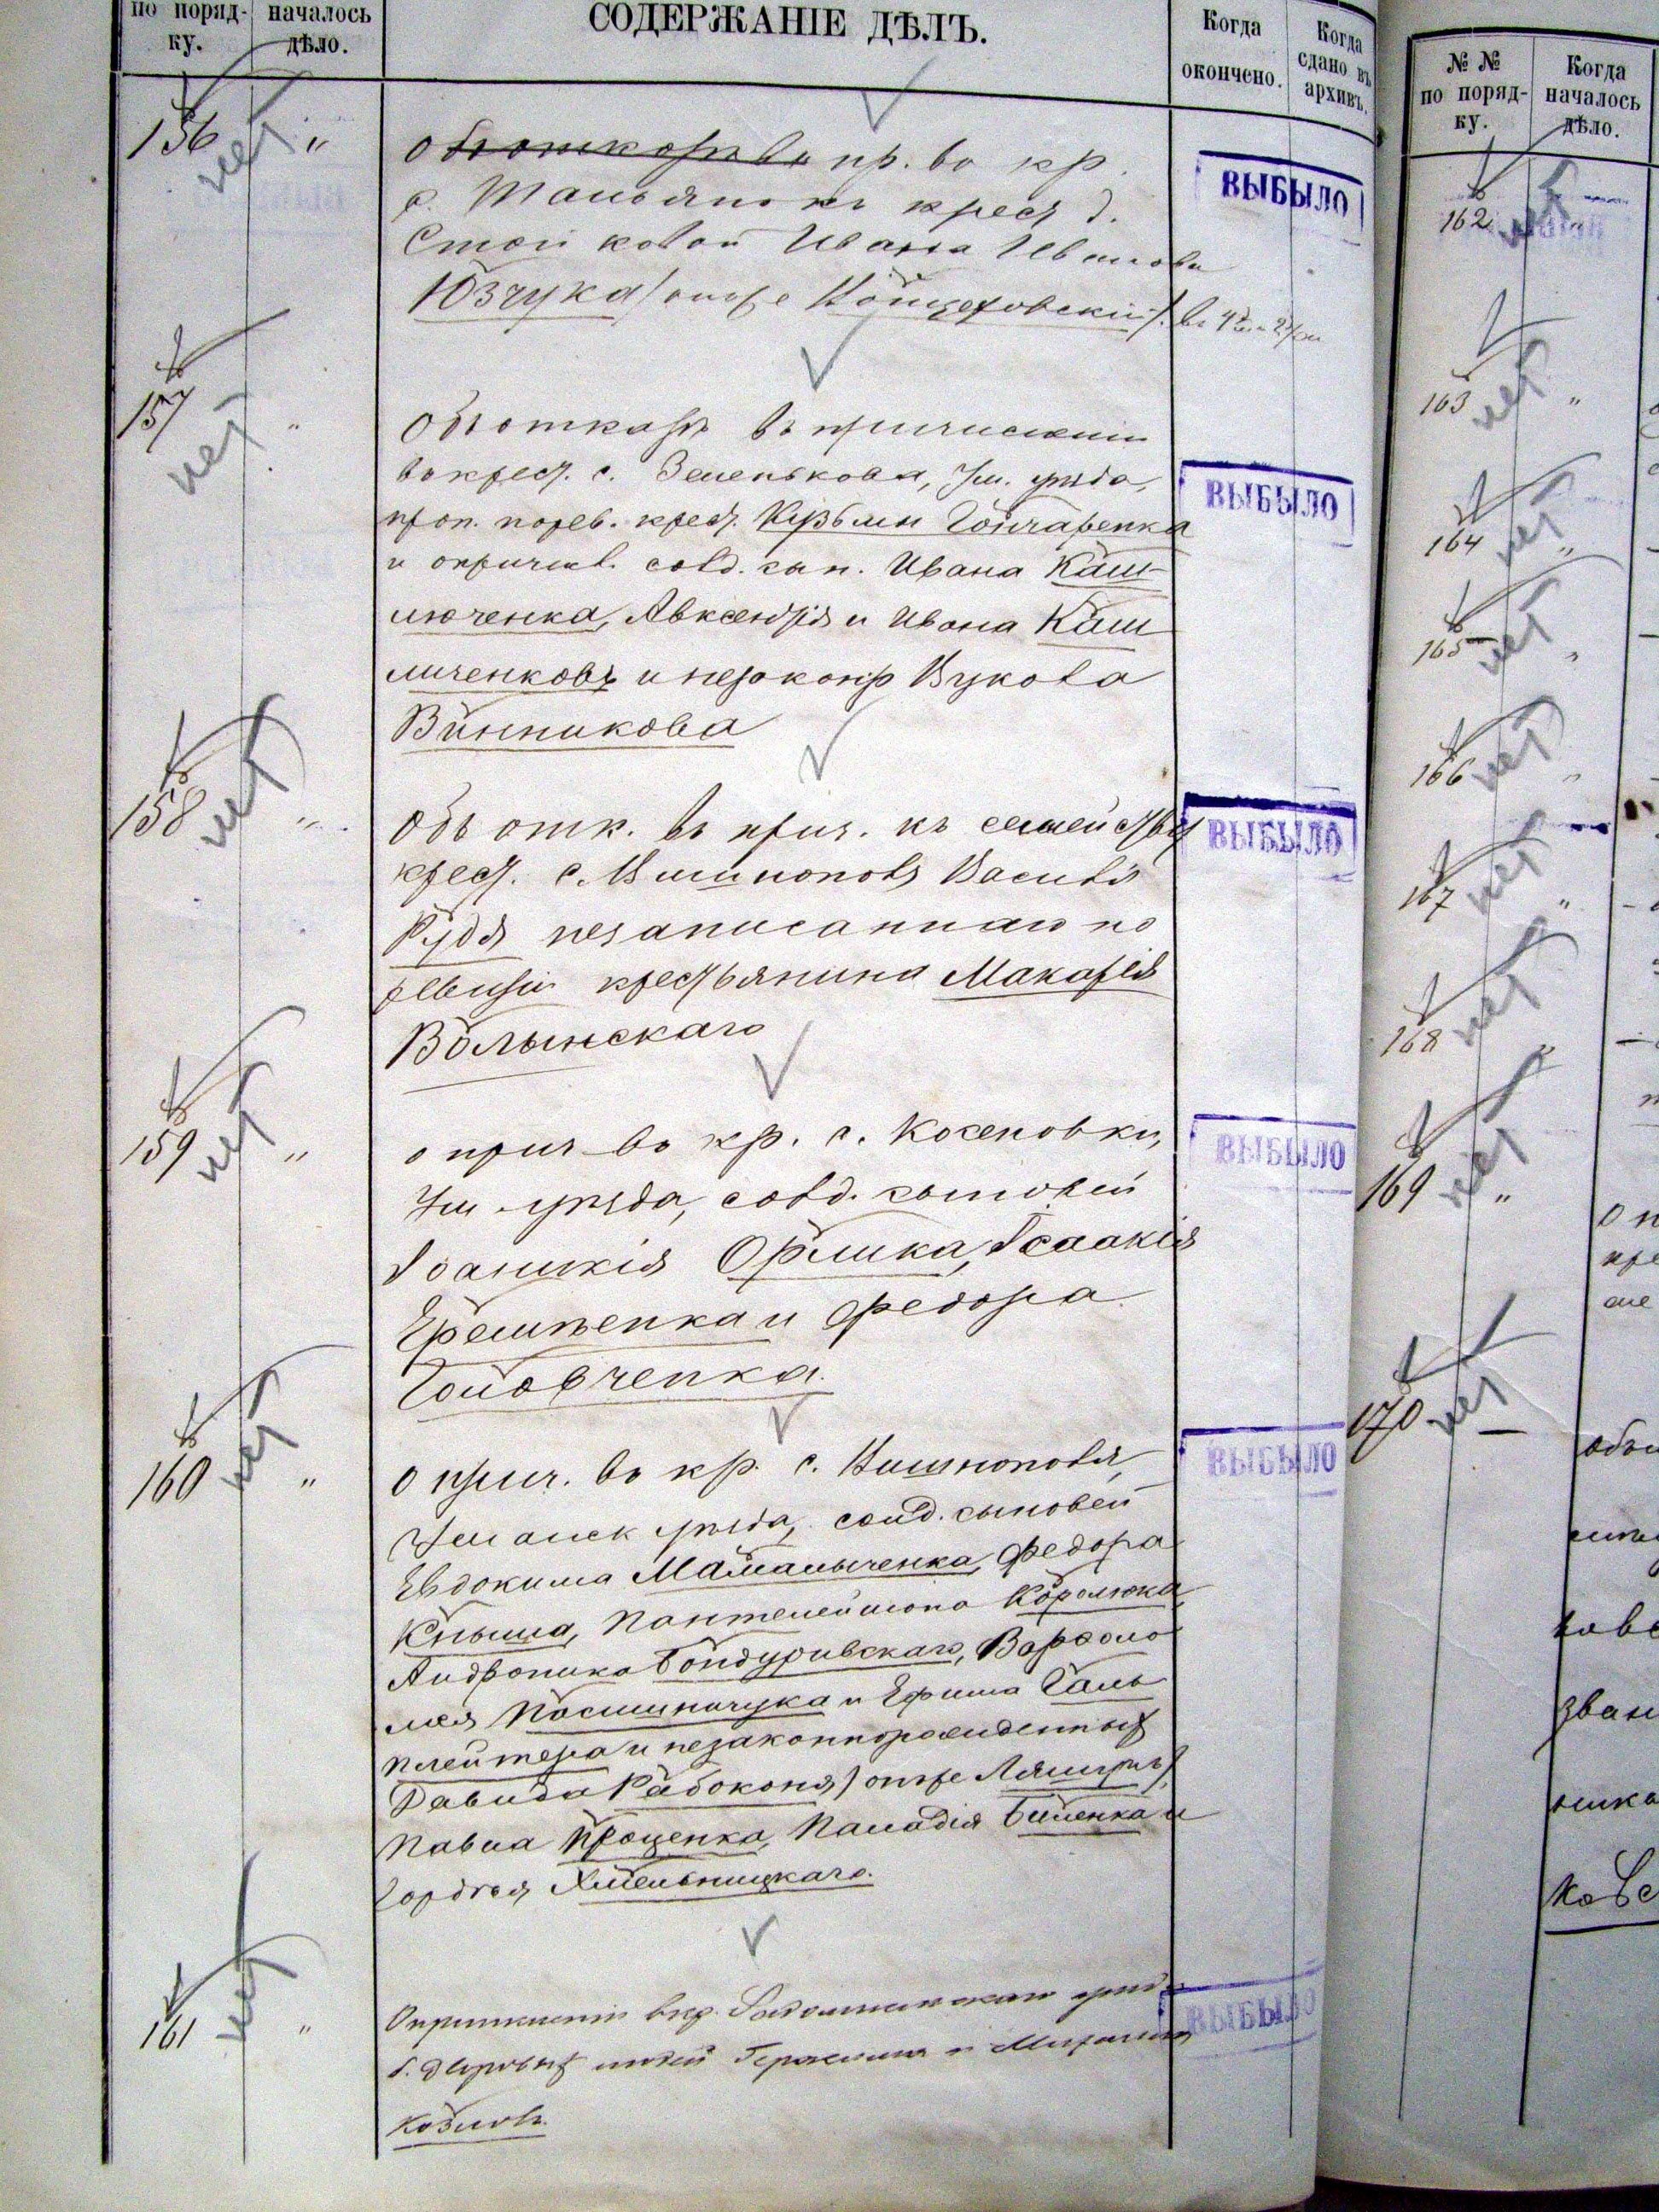 по поряд-
ку.
началось
дѣло.
СОДЕРЖАНІЕ ДѢЛЪ.
Когда
окончено.
Когда
сдано въ
архивъ.
156 нет "
О пр. во кр.
с. крест. д.
Ивана Иванова
Юзчука (онъ же
ВЫБЫЛО
157 нет "
Объ отказѣ въ причисленіи
въ крест. с. Зеленькова, Ум. уѣзда,
проп. по рев. крест. Кузьмы Гончаренка
и о причисл. солд. сын. Ивана Каш-
люченка, Авксентія и Ивана Каш
личенковъ и незаконр
Винникова
ВЫБЫЛО
158 нет "
Объ отк. въ прич. къ семейству
крест. с. Вишнополя Василія
Рудя незаписаннаго по
ревизіи крестьянина Макарія
Волынскаго
ВЫБЫЛО
159 нет "
о прич во кр. с. Косеновки,
Ум уѣзда, солд. сыновей
Іоаникія Орлика, Ісаакія
Еремѣенка и Федора
Головченка.
ВЫБЫЛО
160 нет "
О прич. во кр. с. Вишнополя,
Уманск уѣзда, солд. сыновей
Евдокима Мамалыченка, Федора
Кныша, Пантелеймона Королюка,
Андроника Бондуривскаго, Варфоло
мея и Ефима Галь
плейтера и незаконнорожденныхъ
Давида Рабоконя (онъ же
Павла Проценка, Паладія Биленка и
Гордѣя Хмельницкаго.
ВЫБЫЛО
161 нет "
О причисленіи въ кр. уѣзда
б. дворовыхъ людей Герасима и
Козловъ.
ВЫБЫЛО
№ №
по поряд-
ку.
Когда
началось
дѣло.
162 нет "
163 нет "
164 нет "
165 нет "
166 нет "
167 нет "
168 нет "
169 нет "
170 нет —